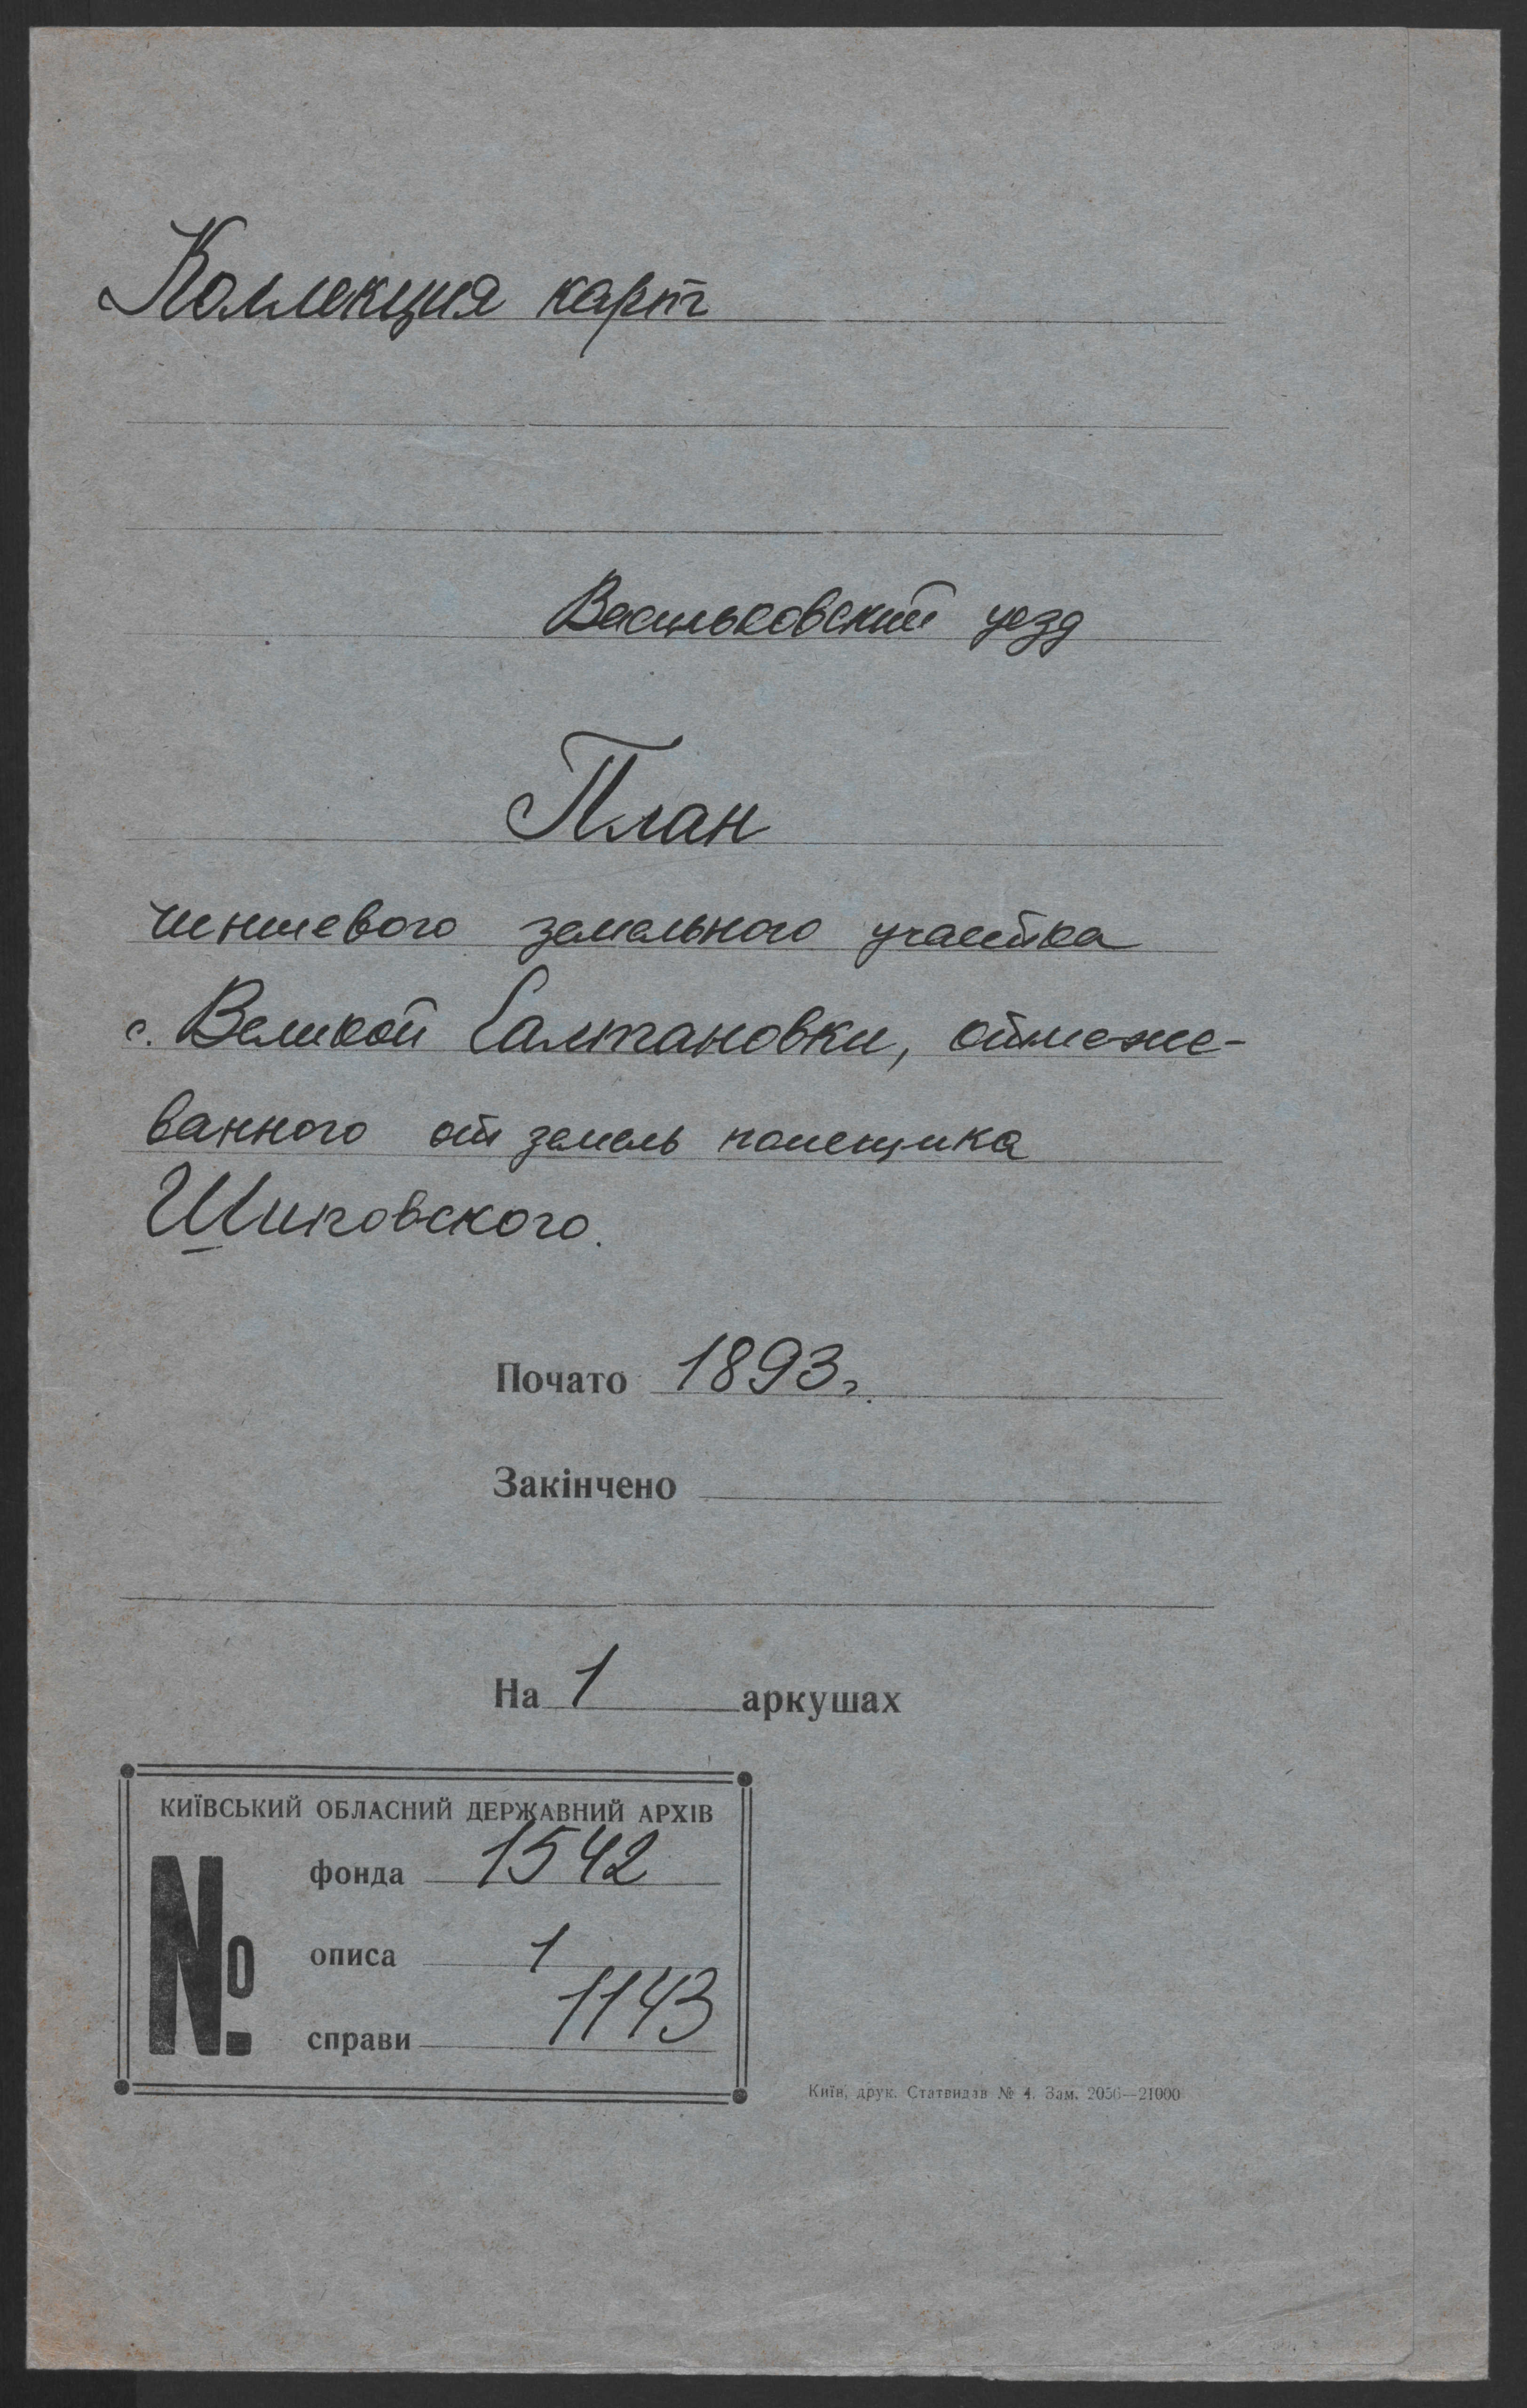 Коллекция карт
Васильковский уезд
План
чиншевого земельного участка
с. Великой Салтановки, отмеже-
ванного от земель помещика
Шиповского.
Почато 1893 г.
Закінчено
На 1 аркушах
КИЇВСЬКИЙ ОБЛАСНИЙ ДЕРЖАВНИЙ АРХІВ
№
фонда 1542
описа 1
справи 1143
Київ, друк. Статвидав № 4. Зам. 2056—21000